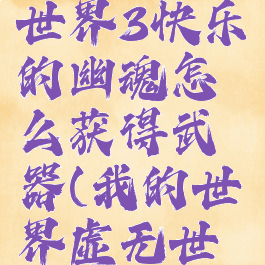 世界3快乐
的幽魂怎
么获得武
器(我的世
界虚无世